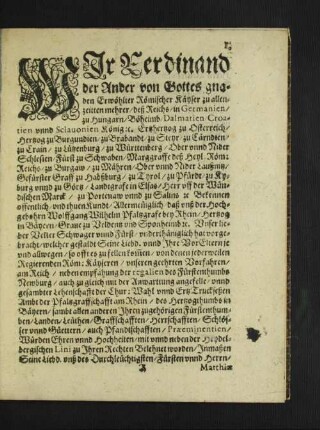 WIr Ferdinand
der Ander von Gottes gna-
den Erwöhlter Römischer Käyser zu allen
zeiten mehrer deß Reichs / in Germanien /
zu Hungarn / Böheimb Dalmatien Croa-
tien vnnd Sclauonien König ꝛc. Ertzhertzog zu Osterreich /
Hertzog zu Burgundien / zu Brabandt / zu Steyr / zu Kärndten /
zu Crain / zu Lützenburg / zu Würtenberg / Ober vnnd Nider
Schlesien / Fürst zu Schwaben / Marggraffe deß Heyl. Röm:
Reichs / zu Burgaw / zu Mähren / Ober vnnd Nider Laußnitz /
Gefürster Graff zu Habspurg / zu Tyrol / zu Pfürdt / zu Ky-
burg vnnd zu Görtz / Landtgrafe in Elsas / Herr vff der Win-
dischen Marck / zu Portenaw vnnd zu Salins ꝛc. Bekennen
offentlich / vnd thuen Kundt / Allermänniglich / daß vnß der Hoch-
gebohrn Wolffgang Wilhelm Pfaltzgrafe bey Rhein / Hertzog
in Bäyern / Graue zu Veldentz vnd Sponheimb ꝛc. Vnser lie-
ber Vetter Schwager vnnd Fürst / vnderthäniglich hat vorge-
bracht / welcher gestaldt Seine Liebd. vnnd Ihre VorEltern je
vnd allwegen / so offt es zu fellen kosten / von denen jederweilen
Regierenden Röm: Käyseren / vnseren geehrten Vorfahren /
am Reich / neben empfahung der regalien des Fürstenthumbs
Newburg / auch zu gleich mit der Anwartung angefelle / vnnd
gesambter Lehenschafft der Chur: Wahl vnnd Ertz Trucksessen
Ambt der Pfaltzgraffschafft am Rhein / des Hertzogthumbs in
Bäyern / sambt allen anderen Ihren zugehörigen Fürstenthum-
ben / Landen / Leuthen / Graffschafften / Herrschafften / Schlös-
ser vnnd Güettern / auch Pfandtschafften / Præeminentien /
Würden Ehren vnnd Hochheiten / mit vnnd neben der Heydel-
bergischen Lini zu Ihren Rechten Belehnet worden / Inmaßen
Seine Liebd. vnß des Durchleüchtigsten / Fürsten vnnd Herrn /
A
Matthiæ